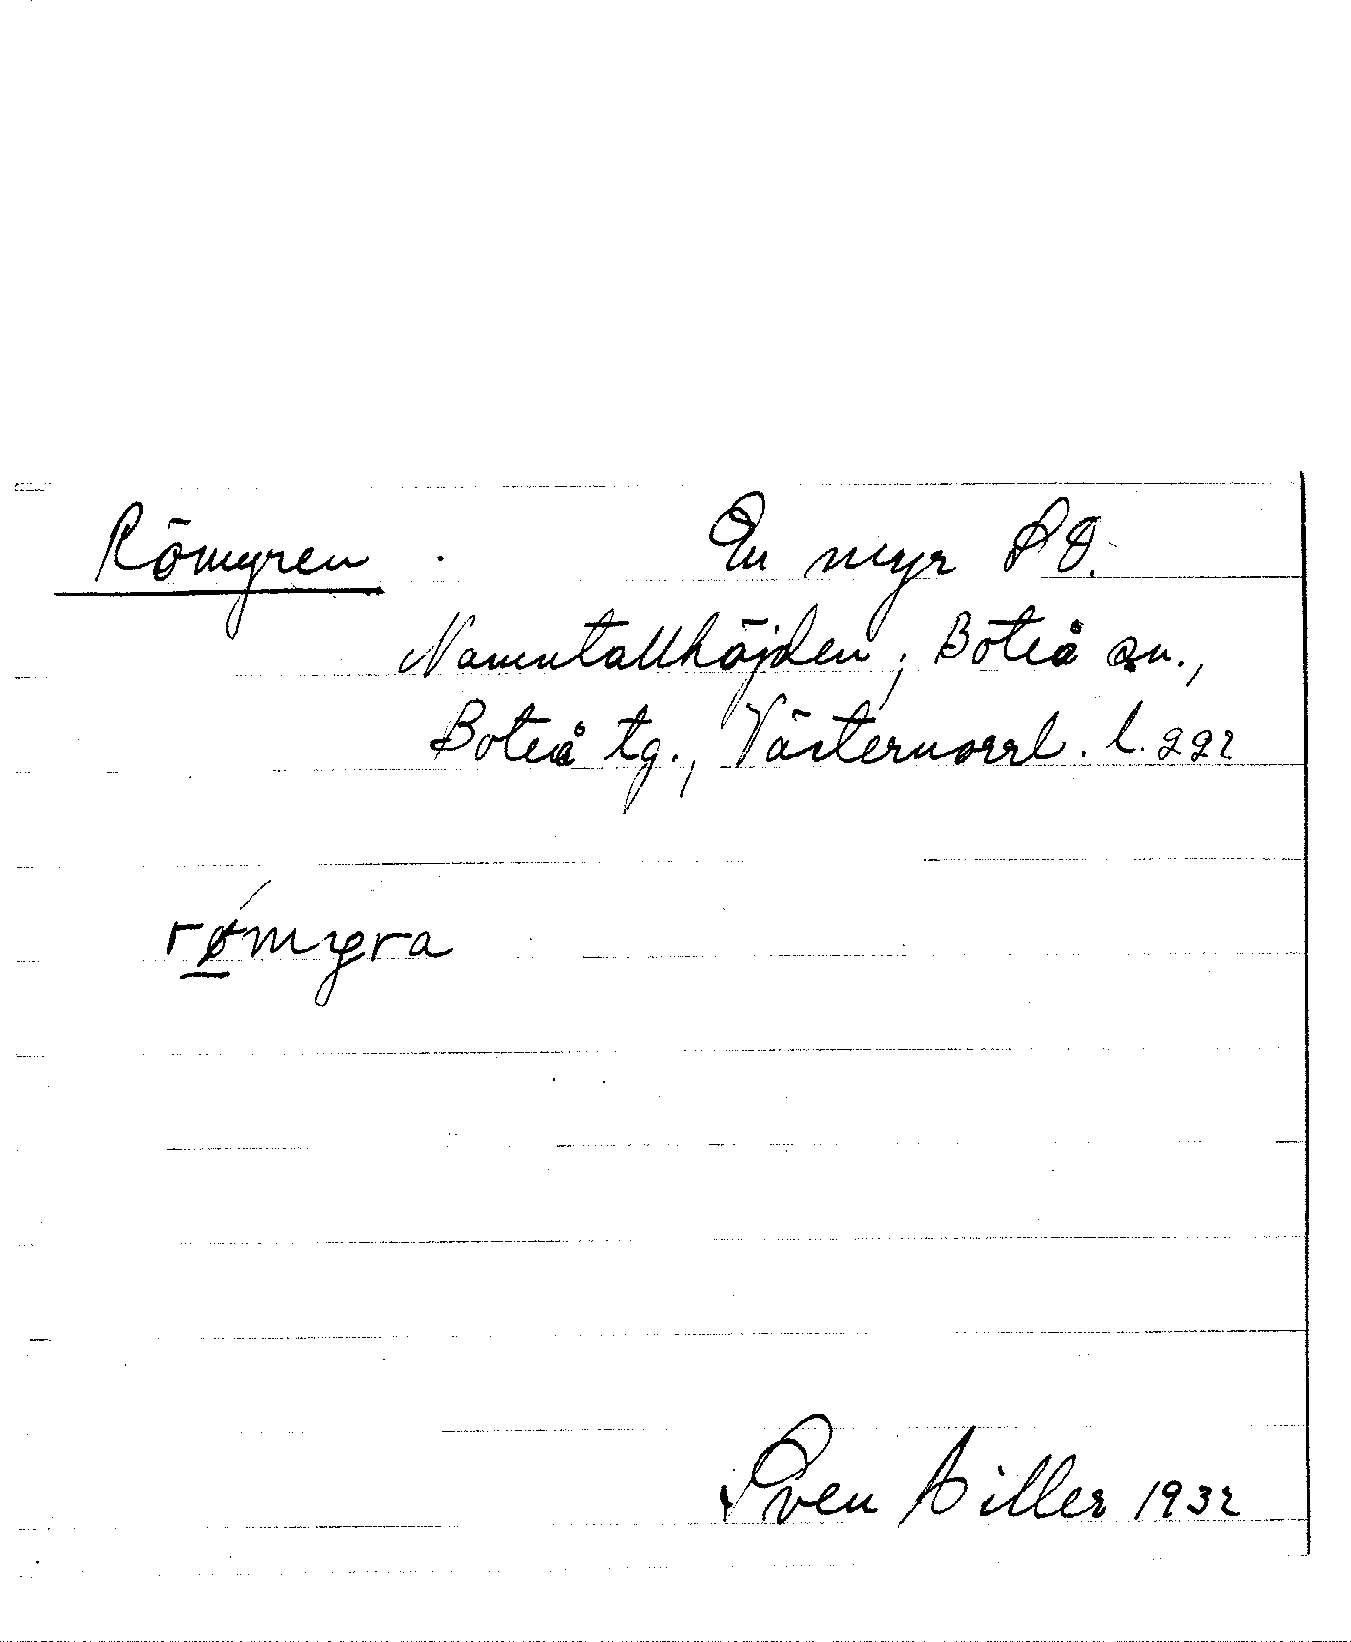 Römyren. En myr SO.
Namntallhöjden, Boteå sn.,
Boteå tg., Västernorrl. l. 292
rømyra
Sven Hiller 1932